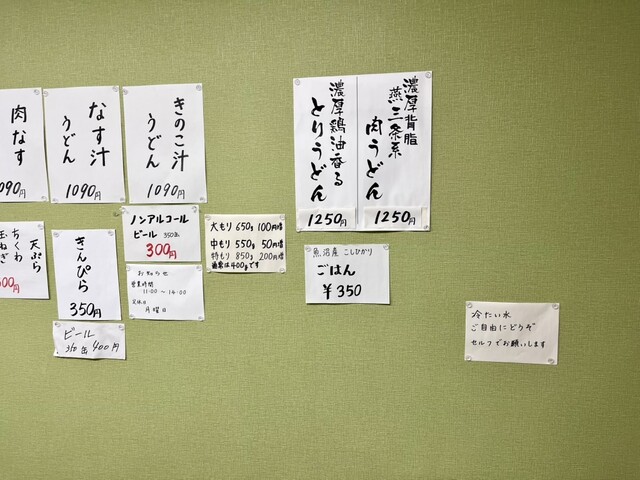 肉なす
1090円
なす汁
うどん
1090円
きのこ汁
うどん
1090円
濃厚鶏油香る
とりうどん
1250円
濃厚背脂
燕三条系
肉うどん
1250円
天ぷら
ちくわ
玉ねぎ
500円
きんぴら
350円
ビール
350缶 400円
ノンアルコール
ビール 350缶
300円
お知らせ
営業時間
11:00〜14:00
定休日
月曜日
大もり 650g 100円増
中もり 550g 50円増
特もり 850g 200円増
通常は400gです
魚沼産 こしひかり
ごはん
¥350
冷たい水
ご自由にどうぞ
セルフでお願いします